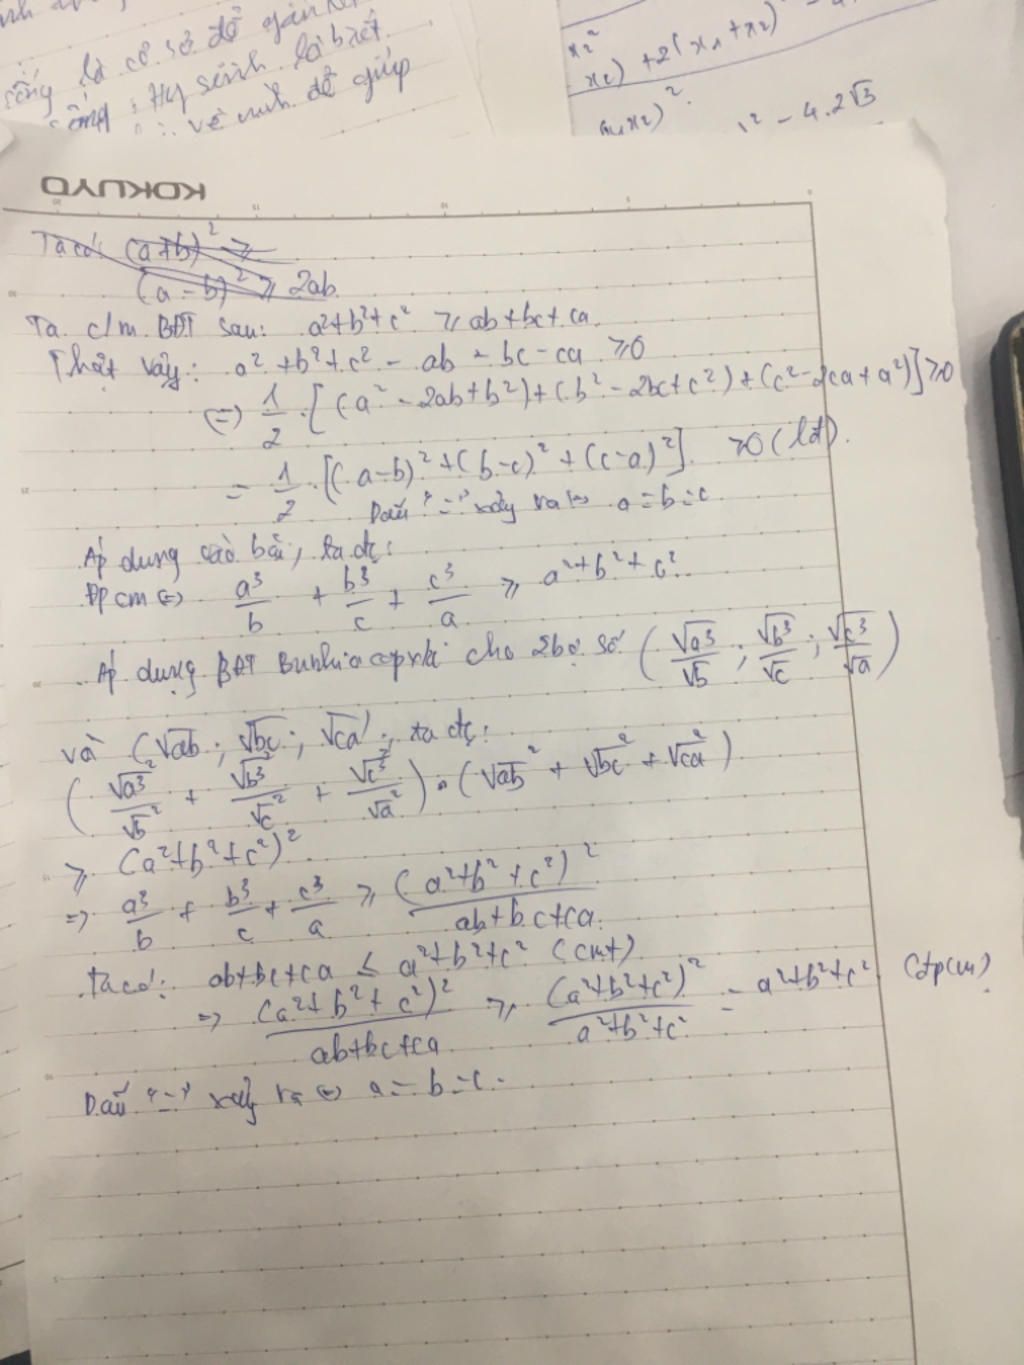 sống là cơ sở để
Hy sinh là biết
về mình để giúp
x₂²
x₂) + 2(x₁ + x₂)
x₁x₂)².
² - 4.2√3
KOKUYO
Ta có: (a+b)² ≥
(a - b)² ≥ 2ab
Ta c/m BĐT sau: a²+b²+c² ≥ ab+bc+ca.
Thật vậy: a² + b² + c² - ab - bc - ca ≥ 0
(=) 1/2 . [(a² - 2ab + b²) + (b² - 2bc + c²) + (c² - 2ca + a²)] ≥ 0
= 1/2 . [(a-b)² + (b-c)² + (c-a)²] ≥ 0 (lđ).
Dấu "=" xảy ra (=) a = b = c
Áp dụng vào bài, ta đc:
Đpcm (=) a³/b + b³/c + c³/a ≥ a²+b²+c².
Áp dụng BĐT Bunhiacopxki cho 2 bộ số (√a³/√b ; √b³/√c ; √c³/√a)
và (√ab ; √bc ; √ca), ta đc:
(√a³²/√b² + √b³²/√c² + √c³²/√a²) . (√ab² + √bc² + √ca²)
≥ (a²+b²+c²)²
=> a³/b + b³/c + c³/a ≥ (a²+b²+c²)²/ab+bc+ca.
Ta có: ab+bc+ca ≤ a²+b²+c² (cmt)
=> (a²+b²+c²)²/ab+bc+ca ≥ (a²+b²+c²)²/a²+b²+c² = a²+b²+c² (đpcm).
Dấu "=" xảy ra (=) a = b = c.